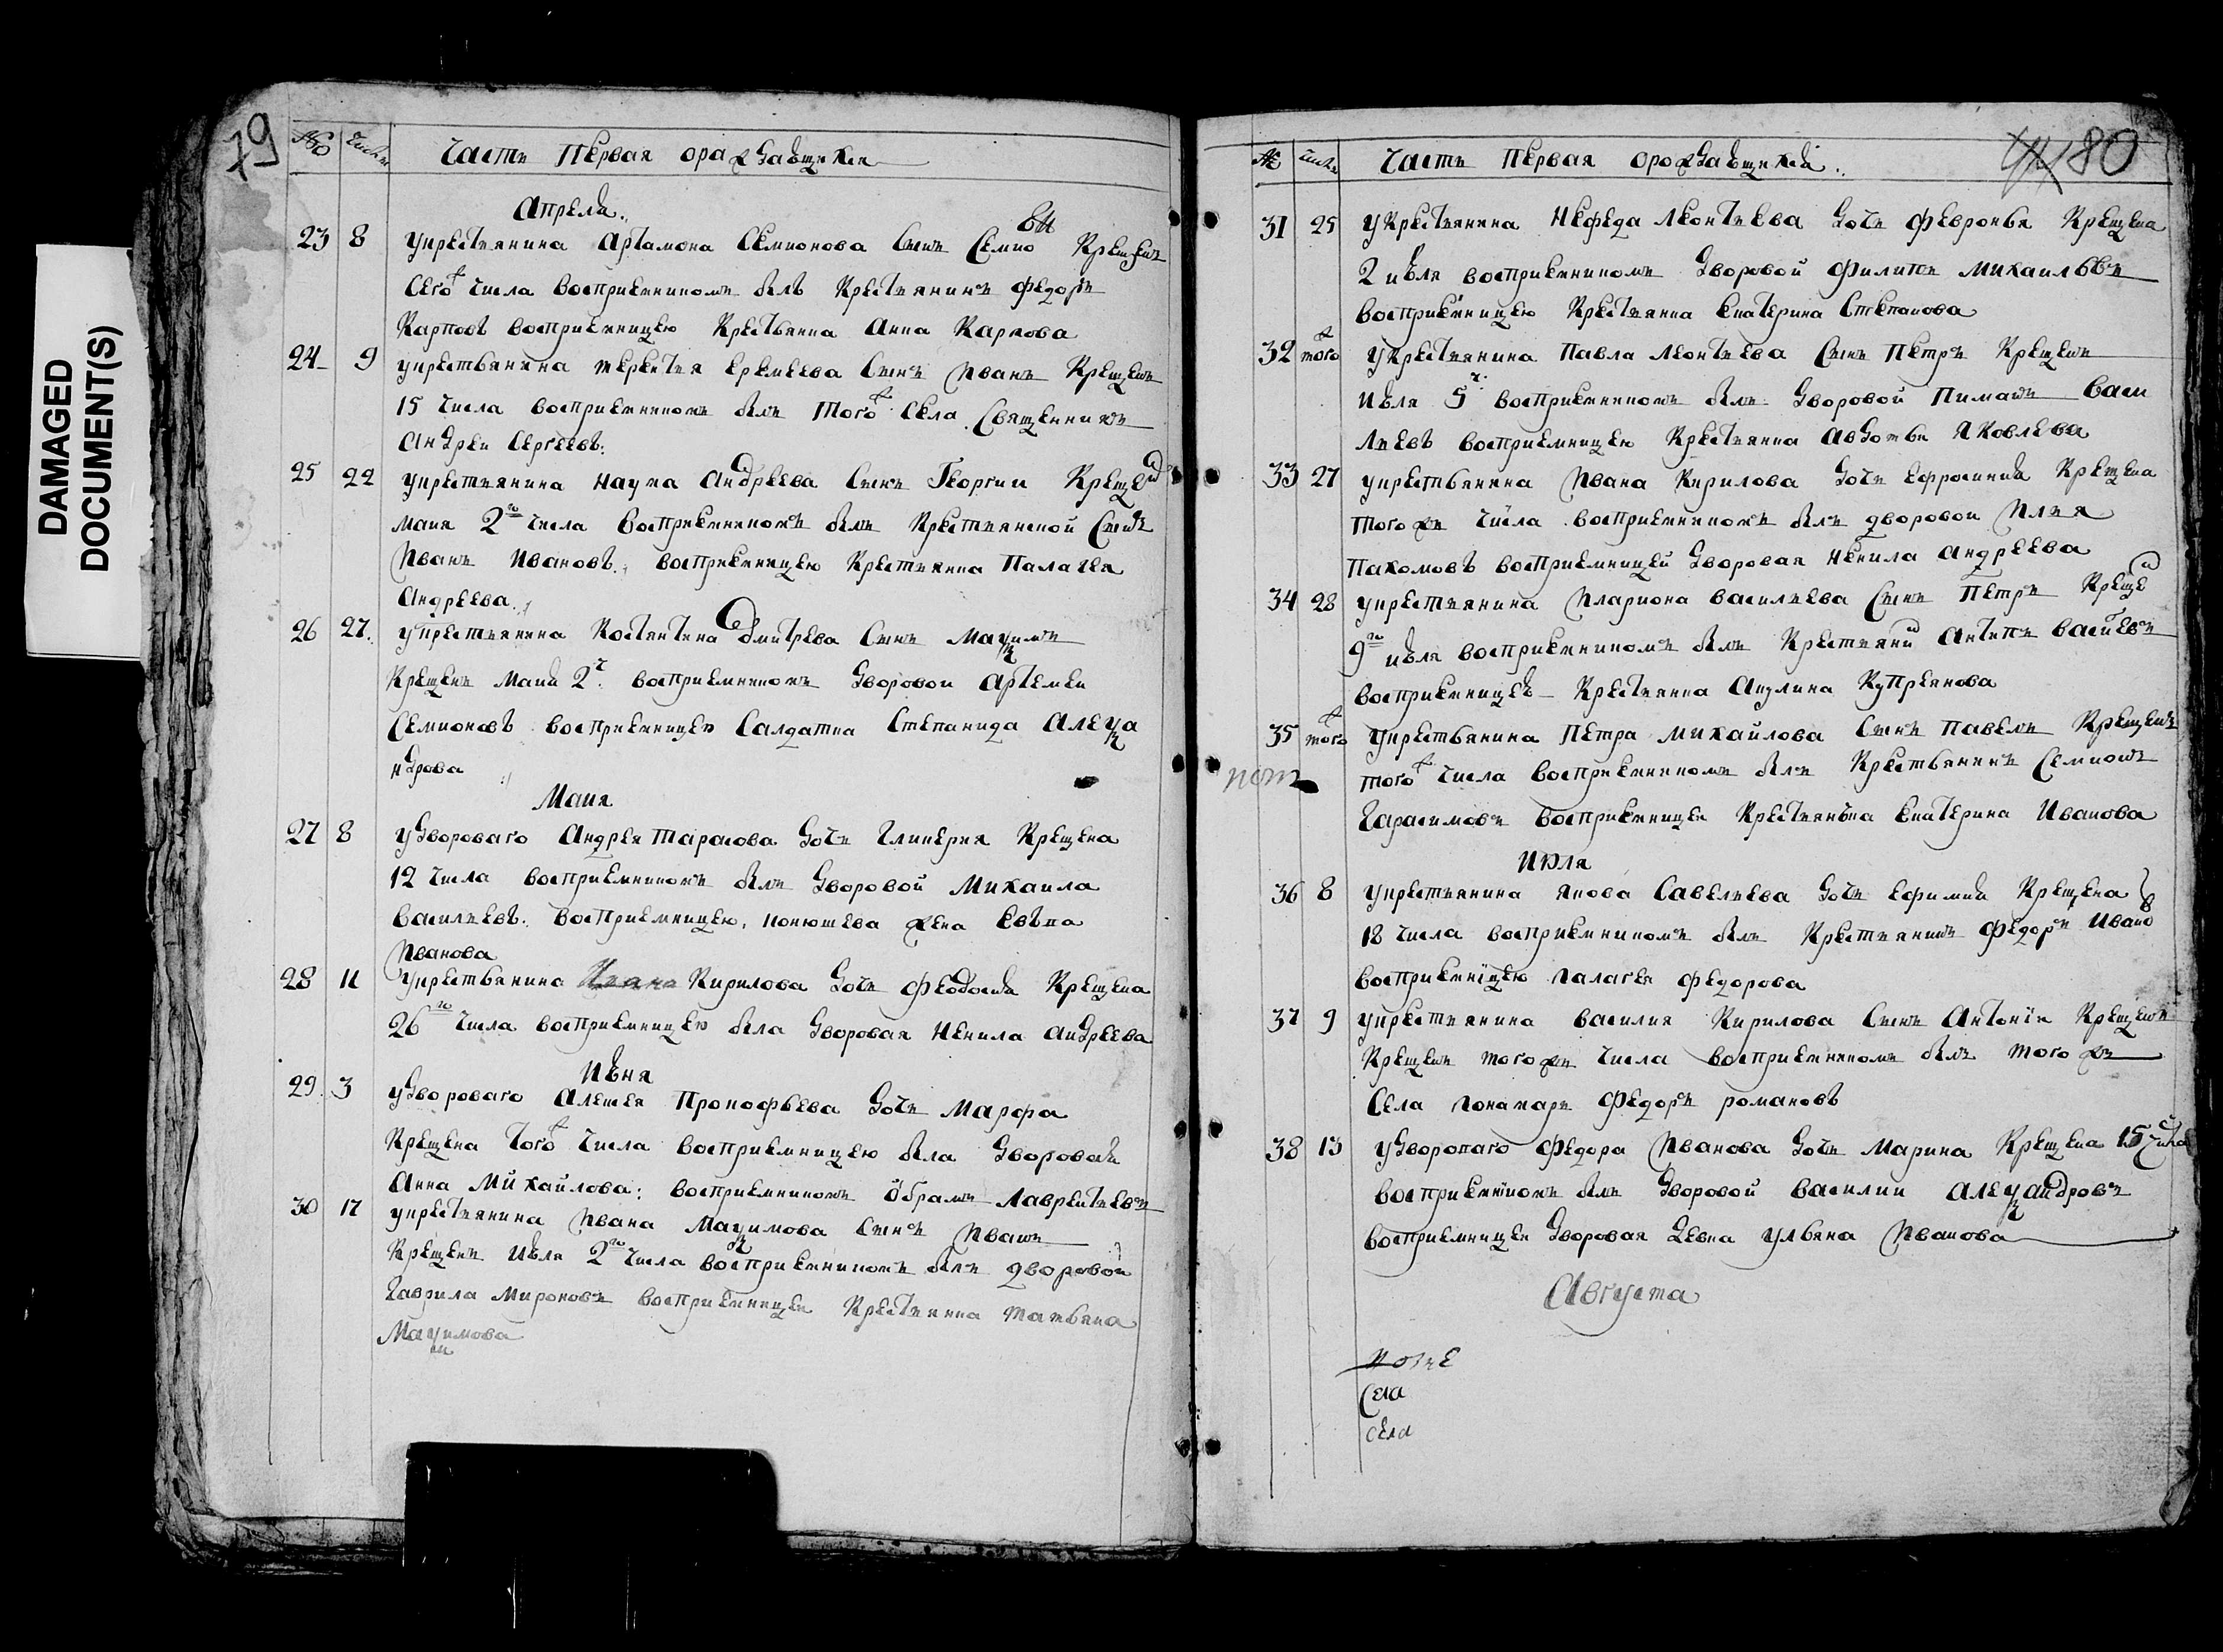 DAMAGED
DOCUMENT(S)
79
№ Число Часть Первая ораждающихся
Апреля.
23 8 укрестьянина Артамона Семионова сынъ Семионъ крещенъ
Сего ж числа восприемникомъ былъ крестьянинъ Федоръ
Карповъ восприемницею крестьянка Анна Карпова
24 9 укрестьянина терентья еремеева сынъ Иванъ крещенъ
15 числа восприемникомъ былъ того ж села Священникъ
Андреи Сергеевъ.
25 22 укрестьянина наума андреева сынъ Георгии крещен
маия 2го числа восприемникомъ былъ крестьянской сынъ
Иванъ Ивановъ. восприемницею крестьянка Палагея
Андреева.
26 27. укрестьянина Костентина дмитрева сынъ Маѯимъ
крещенъ маия 2г. восприемникомъ дворовои Артемеи
Семионовъ восприемницею Салдатка Степанида Алеѯа
ндрова
Маия
27 8 удвороваго Андрея тарасова дочь Гликерия крещена
12 числа восприемникомъ былъ дворовой Михаила
васильевъ. восприемницею, конюшева жена Евъка
Иванова
28 11 укрестьянина Кирилова дочь Феодосия крещена
26го числа восприемницею была дворовая Ненила андреева
Июня
29. 3 удвороваго Алексея Прокофьева дочь Марфа
крещена того ж числа восприемницею была дворовая
Анна Михайлова: восприемникомъ Обрамъ лаврентьевъ
30 17 укрестьянина Ивана Маѯимова сынъ Иванъ
крещенъ Июля 2го числа восприемникомъ былъ дворовои
Гаврила Мироновъ восприемницеи крестьянка татьяна
Маѯимова
80
№ число Часть Первая орождающихся.
31 25 укрестьянина нефеда леонтьева дочь февронья крещена
2 июля восприемникомъ дворовой филипъ михаиловъ
восприемницею крестьянка екатерина Степанова
32 того ж укрестьянина Павла леонтьева сынъ Петръ крещенъ
Июля 5г. восприемникомъ былъ дворовой Пиманъ васи
льевъ восприемницею крестьянка авдотья яковлева
33 27 укрестьянина Ивана Кирилова дочь ефросиния крещена
того же числа восприемникомъ былъ дворовои Илья
Пахомовъ восприемницеи дворовая ненила андреева
34 28 укрестьянина Илариона васильева сынъ Петръ крещен
9го июля восприемникомъ былъ крестьянин антипъ васильевъ
восприемницею крестьянка Акулина Купреянова
35 того ж укрестьянина Петра михайлова сынъ павелъ крещенъ
того ж числа восприемникомъ былъ крестьянинъ Семионъ
Гарасимовъ восприемницеи крестьянъка екатерина Иванова
Июля
36 8 укрестьянина якова Савельева дочь ефимия крещена
18 числа восприемникомъ былъ крестьянинъ Федоръ Ивановъ
восприемницею палагея федорова
37 9 укрестьянина василия Кирилова сынъ Антоній крещенъ
крещенъ того же числа восприемникомъ былъ того же
Села пономарь Федоръ романовъ
38 13 удворопаго Федора Иванова дочь марина крещена 15 числа
восприемникомъ былъ дворовой василии Алеѯандровъ
восприемницеи дворовая девка ульяна Иванова
Августа
Села
села